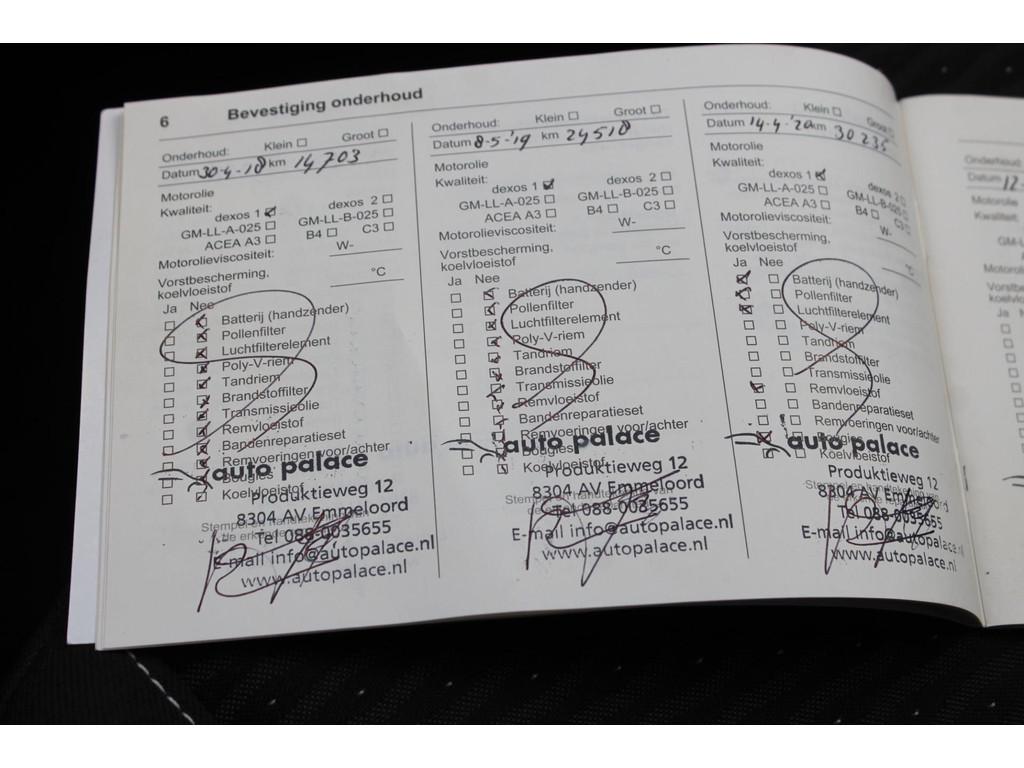 6 Bevestiging onderhoud
Onderhoud: Klein Groot
Datum 30-4-18 km 14703
Motorolie
Kwaliteit:
dexos 1 dexos 2
GM-LL-A-025 GM-LL-B-025
ACEA A3 B4 C3
Motorolieviscositeit: W-
Vorstbescherming,
koelvloeistof °C
Ja Nee
Batterij (handzender)
Pollenfilter
Luchtfilterelement
Poly-V-riem
Tandriem
Brandstoffilter
Transmissieolie
Remvloeistof
Bandenreparatieset
Remvoeringen voor/achter
Bougies
Koelvloeistof
auto palace
Produktieweg 12
8304 AV Emmeloord
Tel 088-0035655
E-mail info@autopalace.nl
www.autopalace.nl
Onderhoud: Klein Groot
Datum 8-5-'19 km 24518
Motorolie
Kwaliteit:
dexos 1 dexos 2
GM-LL-A-025 GM-LL-B-025
ACEA A3 B4 C3
Motorolieviscositeit: W-
Vorstbescherming,
koelvloeistof °C
Ja Nee
Batterij (handzender)
Pollenfilter
Luchtfilterelement
Poly-V-riem
Tandriem
Brandstoffilter
Transmissieolie
Remvloeistof
Bandenreparatieset
Remvoeringen voor/achter
Bougies
Koelvloeistof
auto palace
Produktieweg 12
8304 AV Emmeloord
Tel 088-0035655
E-mail info@autopalace.nl
www.autopalace.nl
Onderhoud: Klein Groot
Datum 14-4-'20 km 30235
Motorolie
Kwaliteit:
dexos 1 dexos 2
GM-LL-A-025 GM-LL-B-025
ACEA A3 B4 C3
Motorolieviscositeit: W-
Vorstbescherming,
koelvloeistof °C
Ja Nee
Batterij (handzender)
Pollenfilter
Luchtfilterelement
Poly-V-riem
Tandriem
Brandstoffilter
Transmissieolie
Remvloeistof
Bandenreparatieset
Remvoeringen voor/achter
Bougies
Koelvloeistof
auto palace
Produktieweg 12
8304 AV Emmeloord
Tel 088-0035655
E-mail info@autopalace.nl
www.autopalace.nl
Onderhoud
Datum 12
Motorolie
Kwaliteit:
Ja N